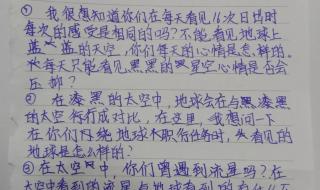 ① 我很想知道你们在每天看见16次日出时
每次的感受是相同的吗?不能看见地球上
蓝蓝的天空,你们每天的心情是怎样的。
每天只能看见黑黑的星空心情是否会
压抑?
② 在漆黑的太空中,地球会在与黑漆黑
的太空 行成对比,在这里,我想问一下
在你们 绕地球 执行任务时, 看见的
地球是怎么样的?
③ 在太空中,你们曾遇到流星吗?在
太空中看到的流星与地球看到的有什么不